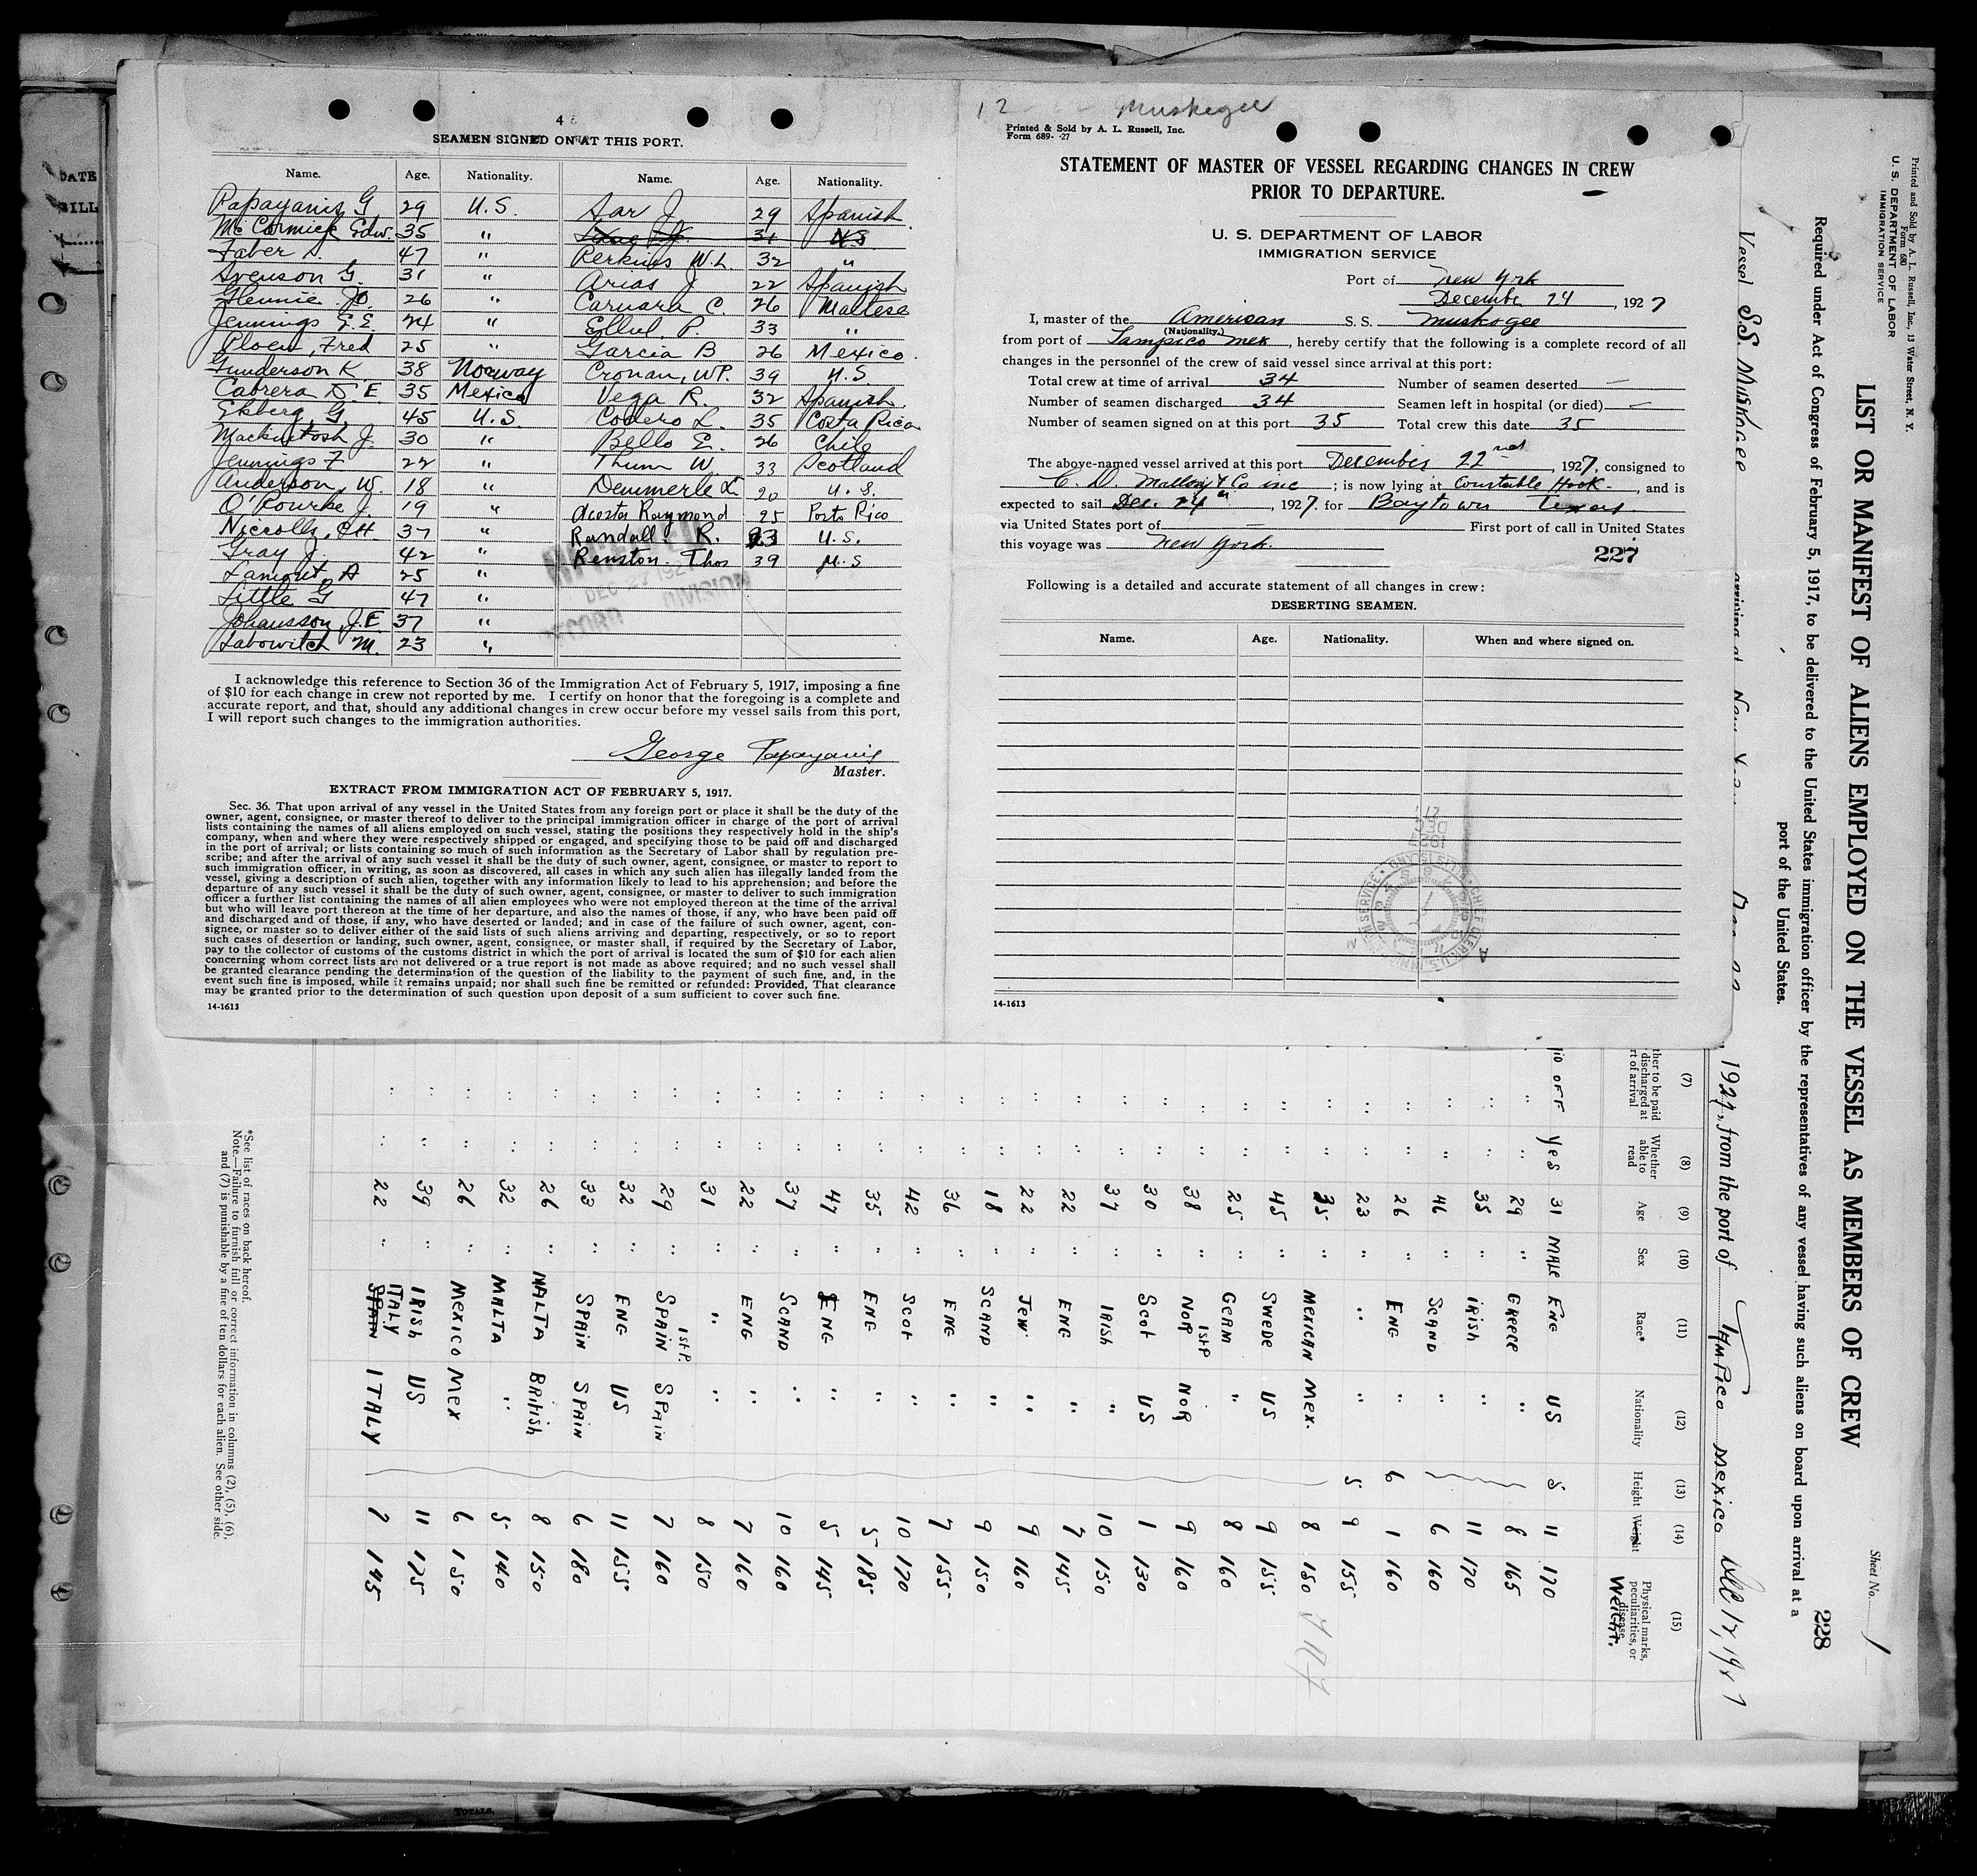 4
SEAMEN SIGNED ON AT THIS PORT.
Name. Age. Nationality. Name. Age. Nationality.
Papayanis G 29 U.S. Sar J 29 Spanish
McCormick Edw. 35 " 31 US
Faber 47 " Perkins W.L. 32 "
Svenson G. 31 " Arias J 22 Spanish
Glennie Jo. 26 " Caruara C 26 Maltese
Jennings E.E. 24 " Ellul P. 33 "
Ploen, Fred 25 " Garcia B 26 Mexico.
Gunderson K 38 Norway Cronan, WP. 39 U.S.
Cabrera D.E 35 Mexico Vega R. 32 Spanish.
Ekberg, G 45 U.S. Codero L. 35 Costa Rica
Mackintosh J. 30 " Bello E. 26 Chile
Jennings F 22 " Thum W. 33 Scotland
Anderson, W. 18 " Demmerle L 20 U.S.
O'Rourke J 19 " Acosta Raymond 25 Porto Rico
Niccolls, CH 37 " Randall R. 23 U.S.
Gray J. 42 " Renston Thos 39 U.S
Lamont, A 25 "
Little G 47 "
Johansson, J.E 37 "
Labowitch M. 23 "
I acknowledge this reference to Section 36 of the Immigration Act of February 5, 1917, imposing a fine
of $10 for each change in crew not reported by me. I certify on honor that the foregoing is a complete and
accurate report, and that, should any additional changes in crew occur before my vessel sails from this port,
I will report such changes to the immigration authorities.
George Papayanis
Master.
EXTRACT FROM IMMIGRATION ACT OF FEBRUARY 5, 1917.
Sec. 36. That upon arrival of any vessel in the United States from any foreign port or place it shall be the duty of the
owner, agent, consignee, or master thereof to deliver to the principal immigration officer in charge of the port of arrival
lists containing the names of all aliens employed on such vessel, stating the positions they respectively hold in the ship's
company, when and where they were respectively shipped or engaged, and specifying those to be paid off and discharged
in the port of arrival; or lists containing so much of such information as the Secretary of Labor shall by regulation pre-
scribe; and after the arrival of any such vessel it shall be the duty of such owner, agent, consignee, or master to report to
such immigration officer, in writing, as soon as discovered, all cases in which any such alien has illegally landed from the
vessel, giving a description of such alien, together with any information likely to lead to his apprehension; and before the
departure of any such vessel it shall be the duty of such owner, agent, consignee, or master to deliver to such immigration
officer a further list containing the names of all alien employees who were not employed thereon at the time of the arrival
but who will leave port thereon at the time of her departure, and also the names of those, if any, who have been paid off
and discharged and of those, if any, who have deserted or landed; and in case of the failure of such owner, agent, con-
signee, or master so to deliver either of the said lists of such aliens arriving and departing, respectively, or so to report
such cases of desertion or landing, such owner, agent, consignee, or master shall, if required by the Secretary of Labor,
pay to the collector of customs of the customs district in which the port of arrival is located the sum of $10 for each alien
concerning whom correct lists are not delivered or a true report is not made as above required; and no such vessel shall
be granted clearance pending the determination of the question of the liability to the payment of such fine, and, in the
event such fine is imposed, while it remains unpaid; nor shall such fine be remitted or refunded: Provided, That clearance
may be granted prior to the determination of such question upon deposit of a sum sufficient to cover such fine.
14-1613
12 Muskegee
Printed & Sold by A. L. Russell, Inc.
Form 689- -27
STATEMENT OF MASTER OF VESSEL REGARDING CHANGES IN CREW
PRIOR TO DEPARTURE.
U. S. DEPARTMENT OF LABOR
IMMIGRATION SERVICE
Port of New York
December 24, 1927
I, master of the American S. S. Muskogee
(Nationality.)
from port of Tampico Mex, hereby certify that the following is a complete record of all
changes in the personnel of the crew of said vessel since arrival at this port:
Total crew at time of arrival 34 Number of seamen deserted —
Number of seamen discharged 34 Seamen left in hospital (or died) —
Number of seamen signed on at this port 35 Total crew this date 35
The above-named vessel arrived at this port December 22nd, 1927, consigned to
C. D. Mallory & Co inc; is now lying at Constable Hook-, and is
expected to sail Dec. 24th, 1927. for Baytown Texas.
via United States port of — First port of call in United States
this voyage was New York.
227
Following is a detailed and accurate statement of all changes in crew:
DESERTING SEAMEN.
Name. Age. Nationality. When and where signed on.
14-1613
Printed and Sold by A. L. Russell, Inc., 13 Water Street, N. Y.
Form 680
U. S. DEPARTMENT OF LABOR
IMMIGRATION SERVICE
Sheet No. 1
LIST OR MANIFEST OF ALIENS EMPLOYED ON THE VESSEL AS MEMBERS OF CREW
228
Required under Act of Congress of February 5, 1917, to be delivered to the United States immigration officer by the representatives of any vessel having such aliens on board upon arrival at a
port of the United States.
Vessel S.S. Muskogee arriving at New York Dec 22, 1927, from the port of Tampico Mexico Dec 12, 1927
(7) (8) (9) (10) (11) (12) (13) (14) (15)
ther to be paid discharged at rt of arrival Whether able to read Age Sex Race* Nationality Height Weight Physical marks, peculiarities, or disease Weight.
ID OFF Yes 31 MALE ENG US 5 11 170
" " 29 " GREECE " 8 165
" " 35 " IRISH " 11 170
" " 46 " SCAND " 6 160
" " 26 " ENG " 6 1 160
" " 23 " " " 5 9 155
" " 35 " MEXICAN MEX. 8 150
" " 45 " SWEDE US 9 155
" " 25 " GERM " 8 160
" " 38 " NOR 1st P NOR 9 160
" " 30 " SCOT US 1 130
" " 37 " IRISH " 10 150
" " 22 " ENG " 7 145
" " 22 " JEW " 9 160
" " 18 " SCAND " 9 150
" " 36 " ENG " 7 155
" " 42 " SCOT " 10 170
" " 35 " ENG " 5 185
" " 47 " ENG " 5 145
" " 37 " SCAND " 10 160
" " 22 " ENG " 7 160
" " 31 " " " 8 150
" " 29 " SPAIN 1st P. SPAIN 7 160
" " 32 " ENG US 11 155
" " 33 " SPAIN SPAIN 6 180
" " 26 " MALTA BRITISH 8 150
" " 32 " MALTA " 5 140
" " 26 " MEXICO MEX 6 150
" " 39 " IRISH US 11 175
" " 22 " ITALY SPAIN ITALY 7 145
*See list of races on back hereof.
Note.—Failure to furnish full or correct information in columns (2), (5), (6),
and (7) is punishable by a fine of ten dollars for each alien. See other side.
DATE
TOTALS,